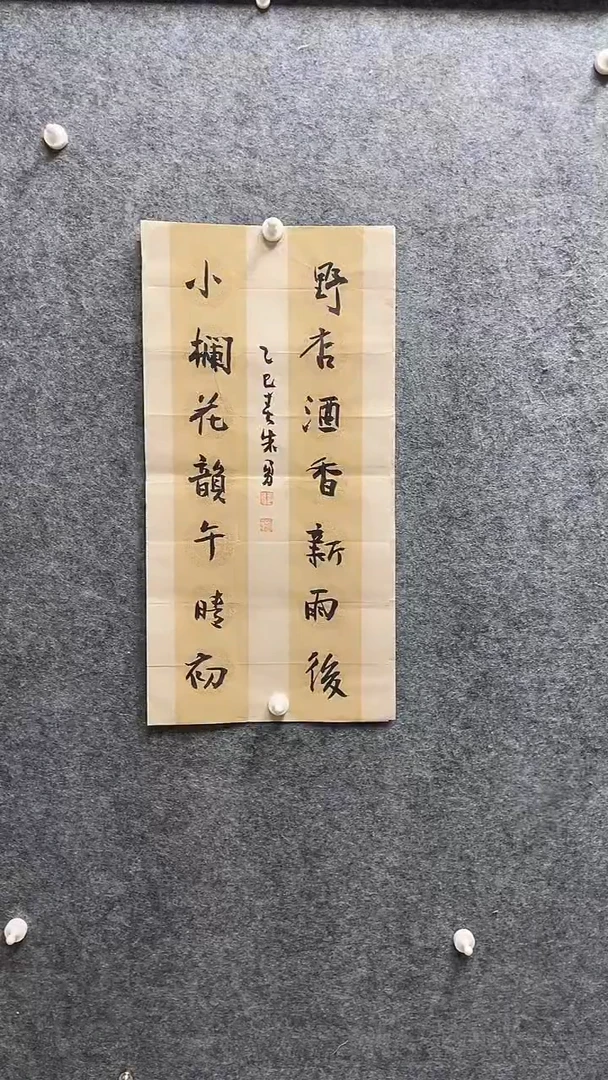 野杏酒香新雨後
小欄花韻午晴初
乙巳春朱勇